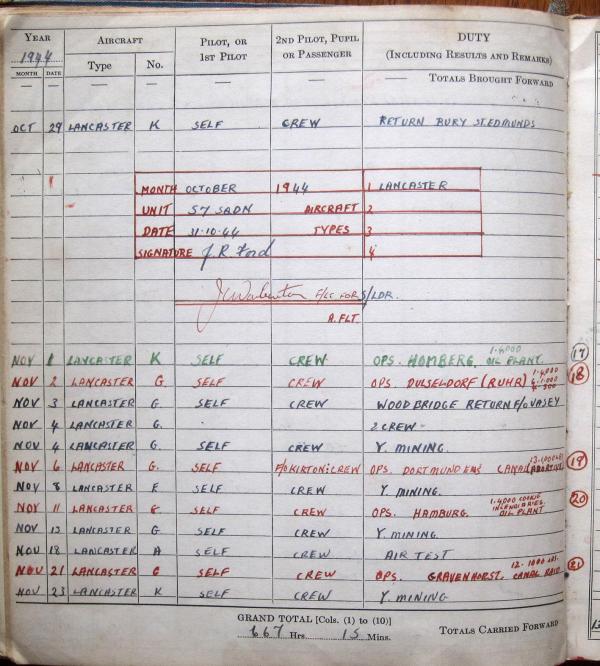 YEAR AIRCRAFT PILOT, OR 1ST PILOT 2ND PILOT, PUPIL OR PASSENGER DUTY (INCLUDING RESULTS AND REMARKS)
1944
MONTH DATE Type No. — — — TOTALS BROUGHT FORWARD
OCT 29 LANCASTER K SELF CREW RETURN BURY ST.EDMUNDS
MONTH OCTOBER 1944 1 LANCASTER
UNIT 57 SQDN AIRCRAFT 2
DATE 31-10-44 TYPES 3
SIGNATURE J.R. Ford 4
F/LT FOR S/LDR.
A. FLT.
NOV 1 LANCASTER K SELF CREW OPS. HOMBERG. OIL PLANT 1-4000 17
NOV 2 LANCASTER G. SELF CREW OPS. DUSELDORF (RUHR) 1-4000 18
NOV 3 LANCASTER G. SELF CREW WOODBRIDGE RETURN F/O VASEY
NOV 4 LANCASTER G. 2 CREW
NOV 4 LANCASTER G. SELF CREW Y. MINING.
NOV 6 LANCASTER G. SELF F/O KIRTON & CREW OPS. DORTMUND EMS CANAL (ABORTIVE) 19
NOV 8 LANCASTER F SELF CREW Y. MINING.
NOV 11 LANCASTER SELF CREW OPS. HAMBURG. 1-4000 COOKIE INCENDIARIES. OIL PLANT 20
NOV 13 LANCASTER G SELF CREW Y. MINING
NOV 18 LANCASTER A SELF CREW AIR TEST
NOV 21 LANCASTER G SELF CREW OPS. GRAVENHORST. CANAL RAID 12-1000 LBS. 21
NOV 23 LANCASTER K SELF CREW Y. MINING
GRAND TOTAL [Cols. (1) to (10)]
667 Hrs. 15 Mins. TOTALS CARRIED FORWARD